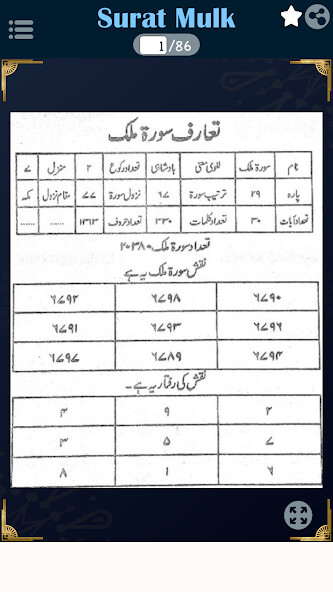 Surat Mulk
1 /86
تعارف سورۃ ملک
نام سورۃ ملک لغوی معنی بادشاہی تعداد رکوع ۲ منزل ۷
پارہ ۲۹ ترتیب سورۃ ۶۷ نزول سورۃ ۷۷ مقام نزول مکہ
تعداد آیات ۳۰ تعداد کلمات ۳۳۰ تعداد حروف ۱۳۱۳ ...... ......
تعداد سورۃ ملک ۲۰۳۸۰
نقش سورۃ ملک یہ ہے
۶۷۹۰ ۶۷۹۸ ۶۷۹۲
۶۷۹۶ ۶۷۹۳ ۶۷۹۱
۶۷۹۴ ۶۷۸۹ ۶۷۹۷
نقش کی رفتار یہ ہے۔
۲ ۹ ۴
۷ ۵ ۳
۶ ۱ ۸